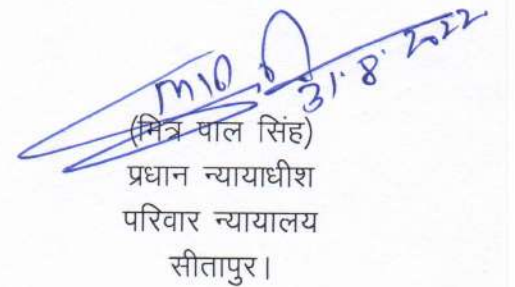 31.8.2022
(मित्र पाल सिंह)
प्रधान न्यायाधीश
परिवार न्यायालय
सीतापुर।